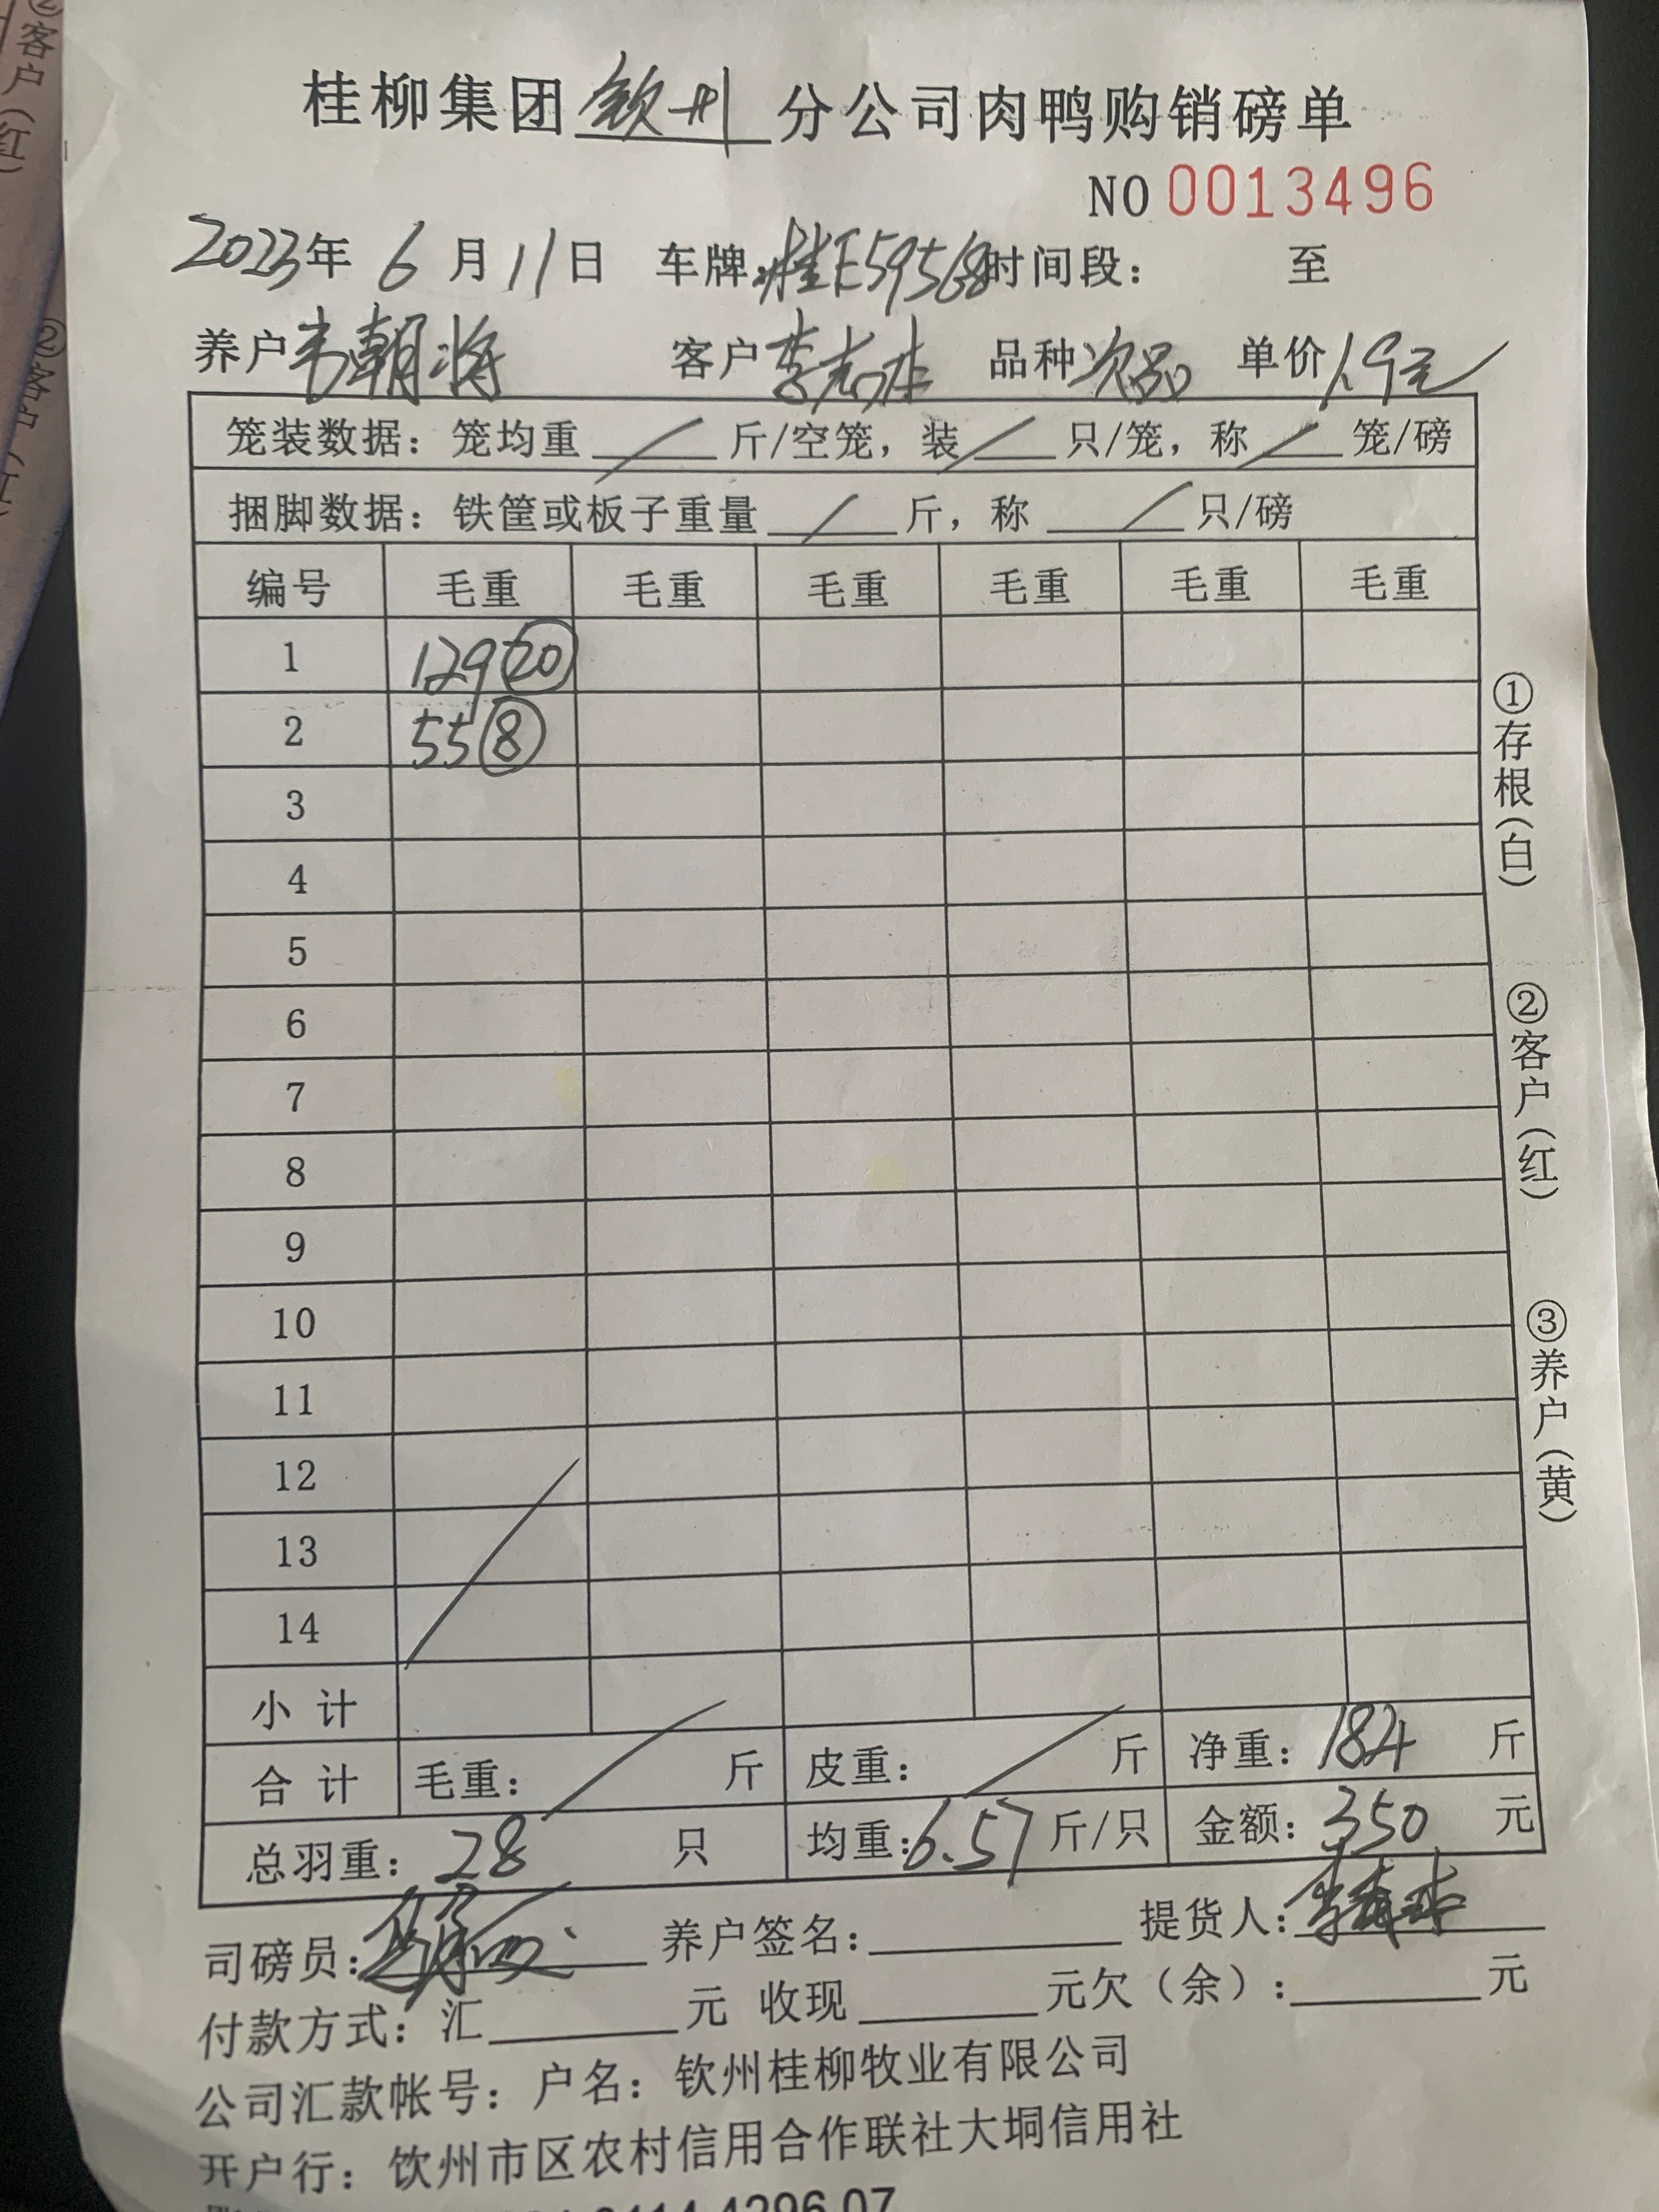 桂柳集团钦州分公司肉鸭购销磅单
NO 0013496
2023年6月11日 车牌:桂E59568时间段: 至
养户韦朝将 客户李志林 品种次品 单价1.9元
笼装数据:笼均重 斤/空笼,装 只/笼,称 笼/磅
捆脚数据:铁筐或板子重量 斤,称 只/磅
编号 毛重 毛重 毛重 毛重 毛重 毛重
1 129 20
2 55 8
3
4
5
6
7
8
9
10
11
12
13
14
小计
合计 毛重: 斤 皮重: 斤 净重:184 斤
总羽重:28 只 均重:6.57 斤/只 金额:350 元
司磅员: 养户签名: 提货人:李志林
付款方式:汇 元 收现 元欠(余): 元
公司汇款帐号:户名:钦州桂柳牧业有限公司
开户行:钦州市区农村信用合作联社大垌信用社
①存根(白)
②客户(红)
③养户(黄)
②客户(红)
②客户(红)